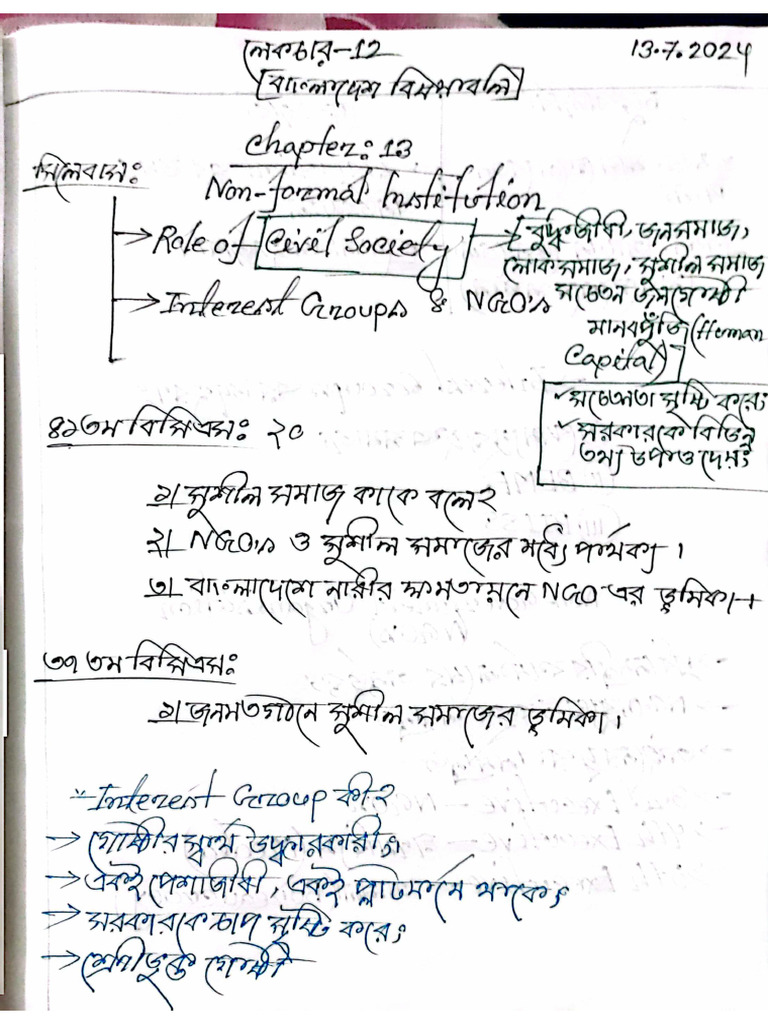 লেকচার-12
13.7.2024
[বাংলাদেশ বিষয়াবলি]
Chapter: 13
সিলেবাস:
Non-formal Institution
→ Role of Civil Society → [বুদ্ধিজীবী, জনসমাজ,
লোকসমাজ, সুশীল সমাজ
সচেতন জনগোষ্ঠী
→ Interest Groups & NGO's
মানবপুঁজি (Human
Capital)]
✓সচেতনতা সৃষ্টি করে;
✓সরকারকে বিভিন্ন
তথ্য উপাত্ত দেয়;
৪১তম বিসিএস: ২০
১। সুশীল সমাজ কাকে বলে?
২। NGO's ও সুশীল সমাজের মধ্যে পার্থক্য।
৩। বাংলাদেশে নারীর ক্ষমতায়নে NGO-এর ভূমিকা।
৩৭তম বিসিএস:
১। জনমত গঠনে সুশীল সমাজের ভূমিকা।
Interest Group কী?
→ গোষ্ঠীর স্বার্থ উদ্ধারকারী;
→ একই পেশাজীবী, একই প্লাটফর্মে থাকে;
→ সরকারকে চাপ সৃষ্টি করে;
→ শ্রেণীভুক্ত গোষ্ঠী